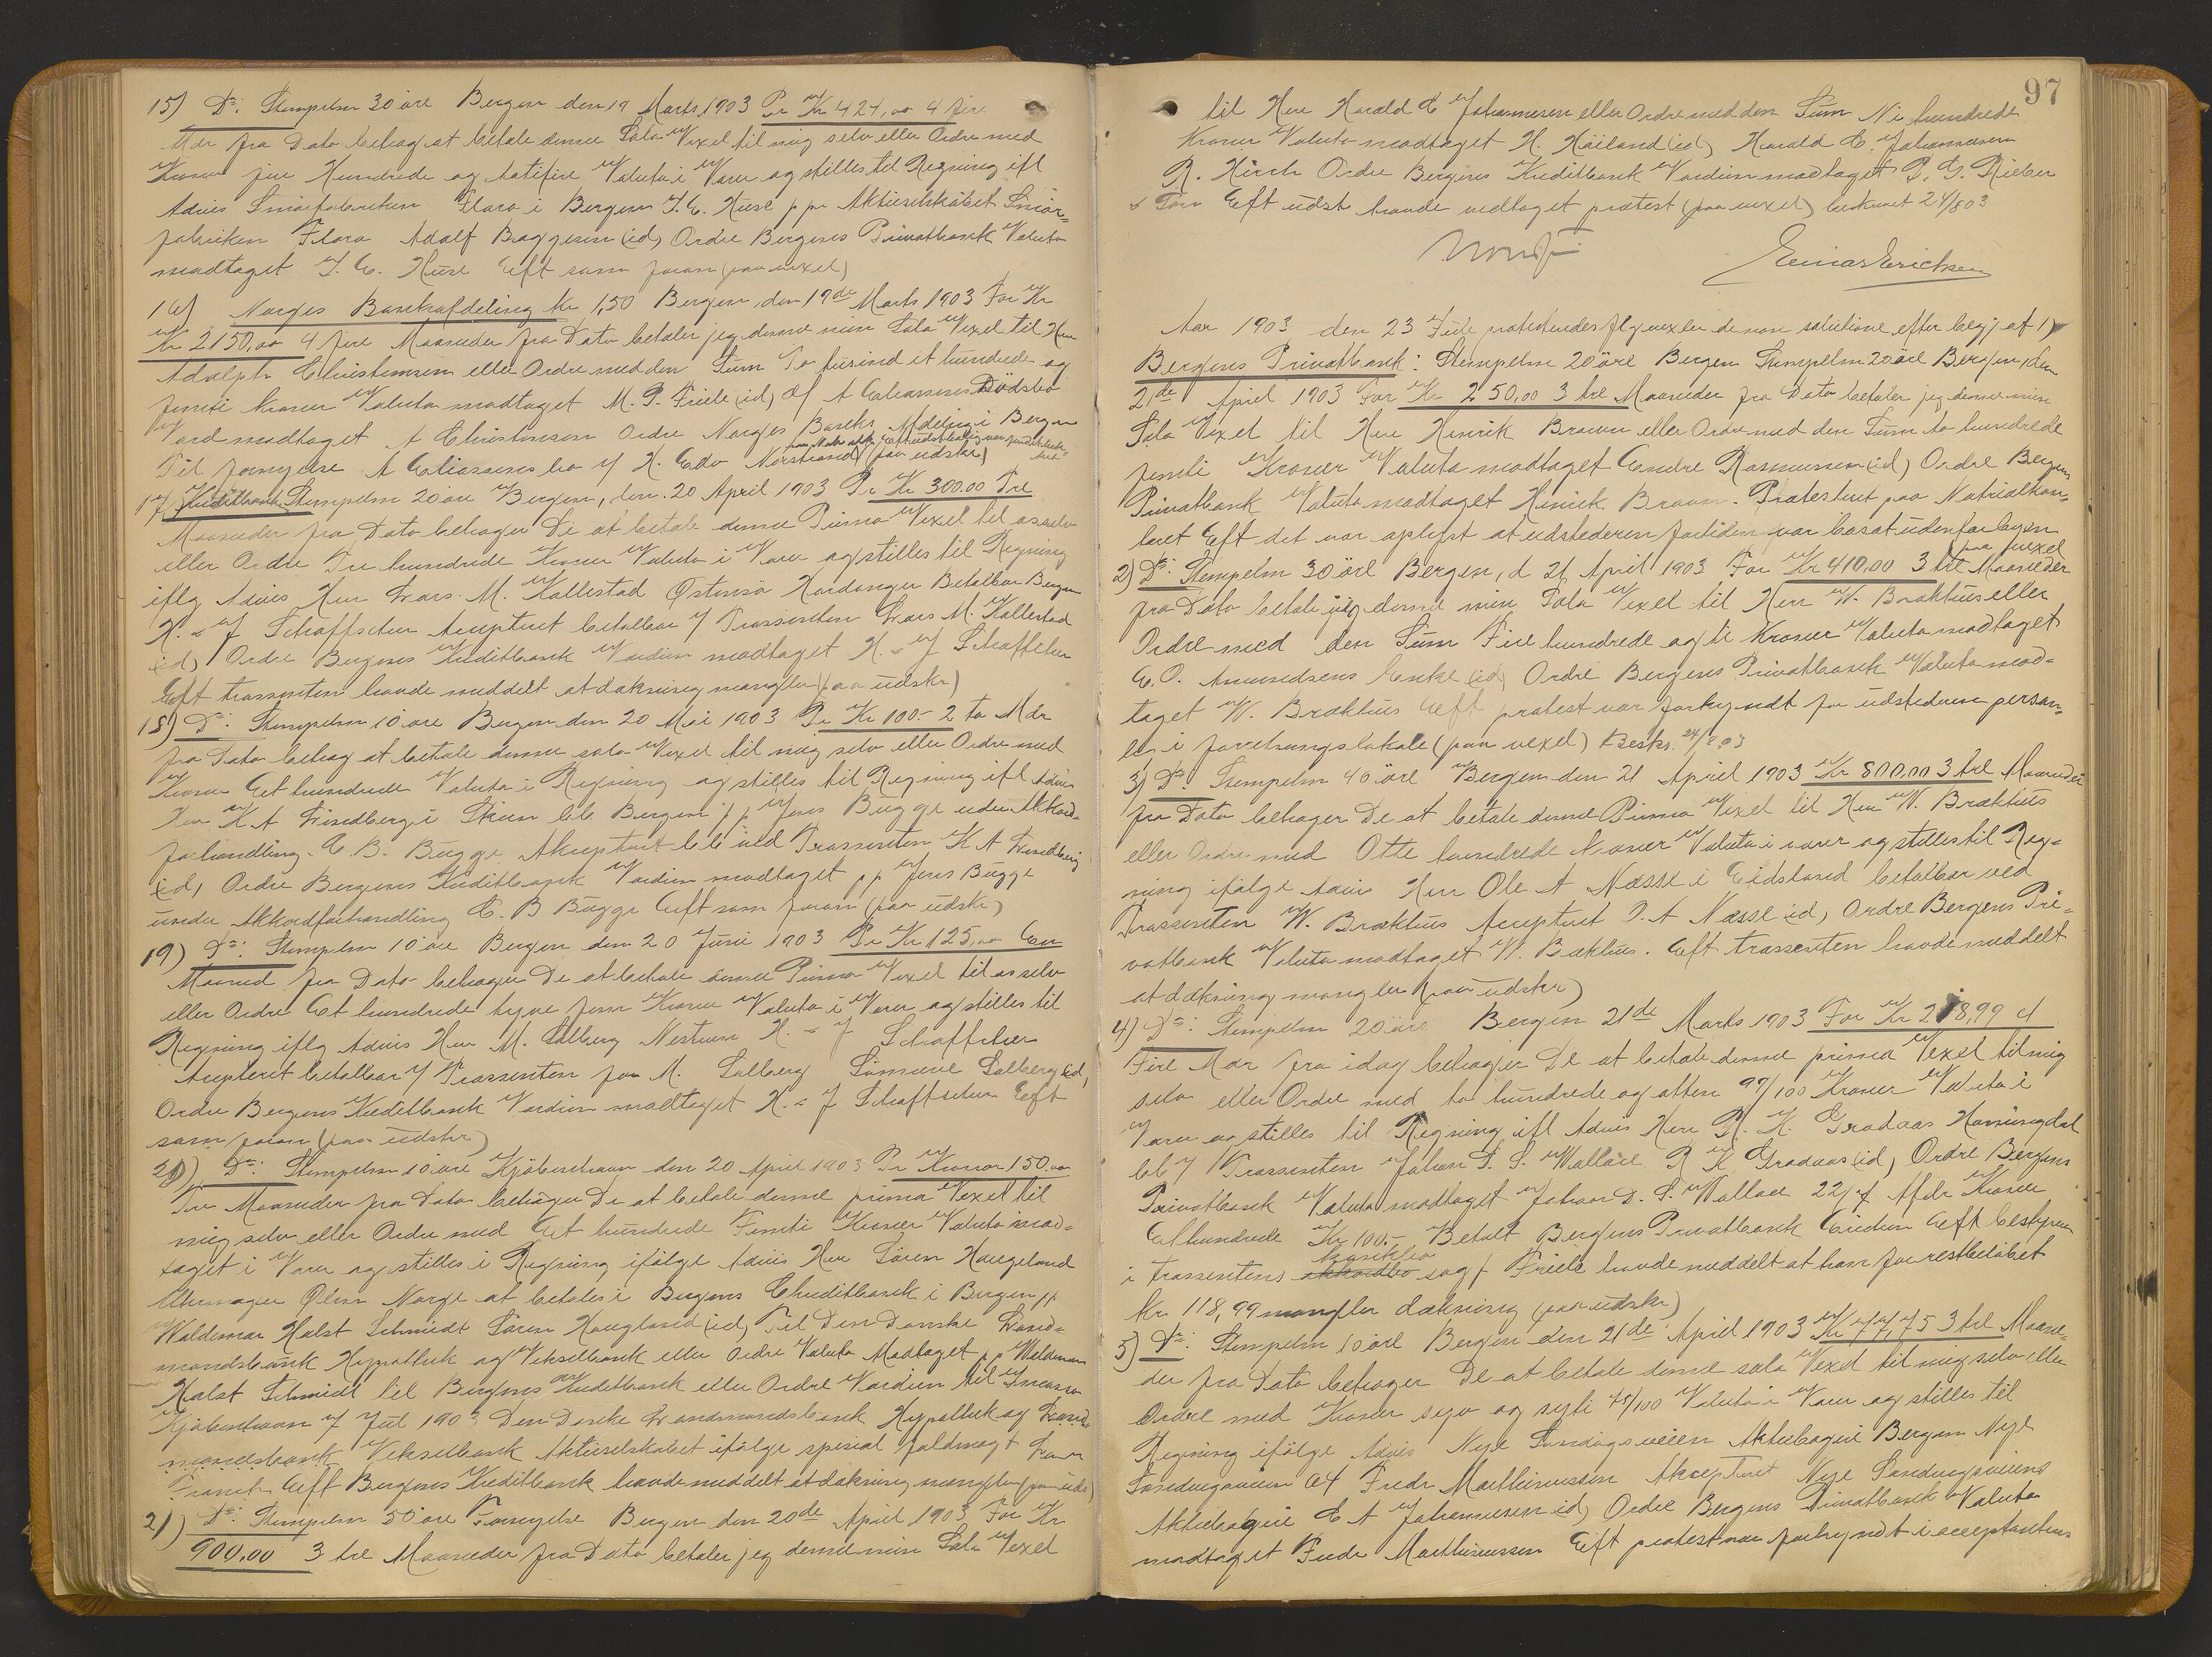 15) Do: Stempelm 30 öre Bergen den 19 Marts 1903 Pr Kr 424,00 4 fire
Mdr fra Dato behag at betale denne Sola Vexel til mig selv eller Ordre med
Kroner fire Hundrede og Valuta i Varer og stilles til Regning ifl
Advis Smörfabriken Flora i Bergen J. E. Huse p pr Aktieselskabet Smör=
fabriken Flora Adolf Braggesen (id) Ordre Bergens Privatbank Valuta
modtaget J. E. Huse Eft som foran (paa vexel)
16) Norges Bankafdeling Kr 1,50 Bergen, den 19de Marts 1903 For Kr
Kr 2150,00 4 fire Maaneder fra Dato betaler jeg denne min Sola Vexel til Herr
Adolph Christensen eller Ordre med den Sum To tusind et hundrede og
femti Kroner Valuta modtaget M. P. Friele (id) af A Eliassens Dödsbo
Værd modtaget A Christensen Ordre Norges Banks Afdeling i Bergen
Til fornyelse A Eliassens bo H. Edv Norstrand (paa udskr)
17) Kreditbank Stempelm 20 öre Bergen, den 20 April 1903 Pr Kr 300.00 Tre
Maaneder fra Dato behager De at betale denne Prima Vexel til os selv
eller Ordre Tre hundrede Kroner Valuta i Varer og stilles til Regning
iflg Advis Herr Lars M. Kallestad Östensö Hardanger Betalbar Bergen
H. & J Schaffscher Acceptert betalbar Trassenten Lars M. Kallestad
(id) Ordre Bergens Kreditbank Værdien modtaget H. & J Schaffscher
Eft trassenten havde meddelt at dækning mangler (paa udskr)
18) Do: Stempelm 10 öre Bergen den 20 Mai 1903 Pr Kr 100.- 2 to Mdr
fra Dato behag at betale denne sola Vexel til mig selv eller Ordre med
Kroner Et hundrede Valuta i Regning og stilles til Regning ifl Advis
Herr K. A Lindberg i Skien blb Bergen p p Jens Bugge under Akkord=
forhandling. C. B. Bugge. Akceptert blb ved Trassenten K A Lindberg
(id) Ordre Bergens Kreditbank Værdien modtaget p p Jens Bugge
under Akkordforhandling C. B Bugge Eft som foran (paa udskr)
19) Do: Stempelm 10 öre Bergen den 20 Juni 1903 Pr Kr 125,00 En
Maaned fra Dato behager De at betale denne Prima Vexel til os selv
eller Ordre Et hundrede tyve fem Kroner Valuta i Varer og stilles til
Regning iflg Advis Herr M. Solberg Nestun H. & J Schaffscher
Acceptert betalbar Trassenten for M. Solberg Solberg (id)
Ordre Bergens Kreditbank Værdien modtaget H. & J Schaffscher Eft
som foran (paa udskr)
20) Do: Stempelm 10 öre Kjöbenhavn den 20 April 1903 Pr Kroner 150.00
Tre Maaneder fra Dato behager De at betale denne prima Vexel til
mig selv eller Ordre med Et hundrede Femti Kroner Valuta mod=
taget i Varer og stilles i Regning ifölge Advis Herr Sören Haugeland
Uhrmager Ölen Norge at betales i Bergens Chreditbank i Bergen pp
Waldemar Holst Schmidt Sören Haugland (id) Til Den Danske Land=
mandsbank Hypothek og Vekselbank eller Ordre Valuta Modtaget p p Waldemar
Holst Schmidt til Bergens Kreditbank eller Ordre Værdien til Incasso
Kjöbenhavn Juli 1903 Den Danske Landmandsbank Hypothek og
Vekselbank Aktieselskabet ifölge spesial fuldmagt
Franck Eft Bergens Kreditbank havde meddelt at dækning mangler (paa uds)
21) Do: Stempelm 50 öre Fornyelse Bergen den 20de April 1903 For Kr
900,00 3 tre Maaneder fra Dato betaler jeg denne min Sola Vexel
97
til Herr Harald C Johannesen eller Ordre med den Sum Ni hundrede
Kroner Valuta modtaget H. Höiland (id) Harald C. Johannesen
R. Hirch Ordre Bergens Kreditbank Værdien modtaget P. G. Rieber
& Sön Eft udst havde vedtaget protest (paa vexel) beskrevet 24/8 03
Einar Erichsen
Aar 1903 den 23 Juli protesteredes flg vexler de non solutione efter begj af 1)
Bergens Privatbank: Stempelm 20 öre Bergen Stempelm 20 öre Bergen, den
21de April 1903 For Kr 250,00 3 tre Maaneder fra Dato betaler jeg denne min
Sola Vexel til Herr Henrik Brown eller Ordre med den Sum to hundrede
femti Kroner Valuta modtaget Endre Rasmussen (id) Ordre Bergens
Privatbank Valuta modtaget Henrik Brown. Protestert paa Notrialkon=
toret Eft det var oplyst at udstederen fortiden var bosat udenfor byen
paa vexel
2) Do: Stempelm 30 öre Bergen, d 21 April 1903 For Kr 410,00 3 tre Maaneder
fra Dato betale jeg denne min Sola Vexel til Herr W. Brækhus eller
Ordre med den Sum Fire hundrede og ti Kroner Valuta modtaget
E. O. Amundsens Enke (id) Ordre Bergens Privatbank Valuta mod=
taget W. Brækhus Eft protest var forkyndt for udstederen person=
lig i forretningslokale (paa vexel) Beskr. 24/8 03
3) Do: Stempelm 40 öre Bergen den 21 April 1903 Kr 800,00 3 tre Maaneder
fra Dato behager De at betale denne Prima Vexel til Herr W. Brækhus
eller Ordre med Otte hundrede Kroner Valuta i varer og stilles til Reg=
ning ifölge Advis Herr Ole A Næsse i Eidsland betalbar ved
Trassenten W. Brækhus Acceptert O. A Næsse (id) Ordre Bergens Pri=
vatbank Valuta modtaget W. Brækhus. Eft trassenten havde meddelt
at dækning mangler (paa udskr)
4) Do: Stempelm 20 öre Bergen 21de Marts 1903 For Kr 218,99 4
Fire Mdr fra idag behager De at betale denne prima Vexel til mig
selv eller Ordre med to hundrede og atten 99/100 Kroner Valuta i
Varer og stilles til Regning ifl Advis Herr R. K. Gradaas Honningdal
blb Trassenten Johan D. S. Wallace R K Gradaas (id) Ordre Bergens
Privatbank Valuta modtaget Johan D. S. Wallace 22/7 Afdr Kroner
Ethundrede Kr 100.- Betalt Bergens Privatbank Eft bestyreren
konkbo
i trassentens akkordbo sagf Friele havde meddelt at han for restbelöbet
Kr. 118,99 mangler dækning (paa udskr)
5) Do: Stempelm 10 öre Bergen den 21de April 1903 Kr 77,75 3 tre Maane=
der fra Dato behager De at betale denne sola Vexel til mig selv eller
Ordre med Kroner syv og sytti 75/100 Valuta i Varer og stilles til
Regning ifölge Advis Nye Sandvigsveien Aktiebageri Bergen Nye
Sandvigsveien 64 Fredr Marthinussen Akceptert Nye Sandvigsveiens
Aktiebageri C A Johannesen (id) Ordre Bergens Privatbank Valuta
modtaget Fredr Marthinussen Eft protest var forkyndt i acceptantens